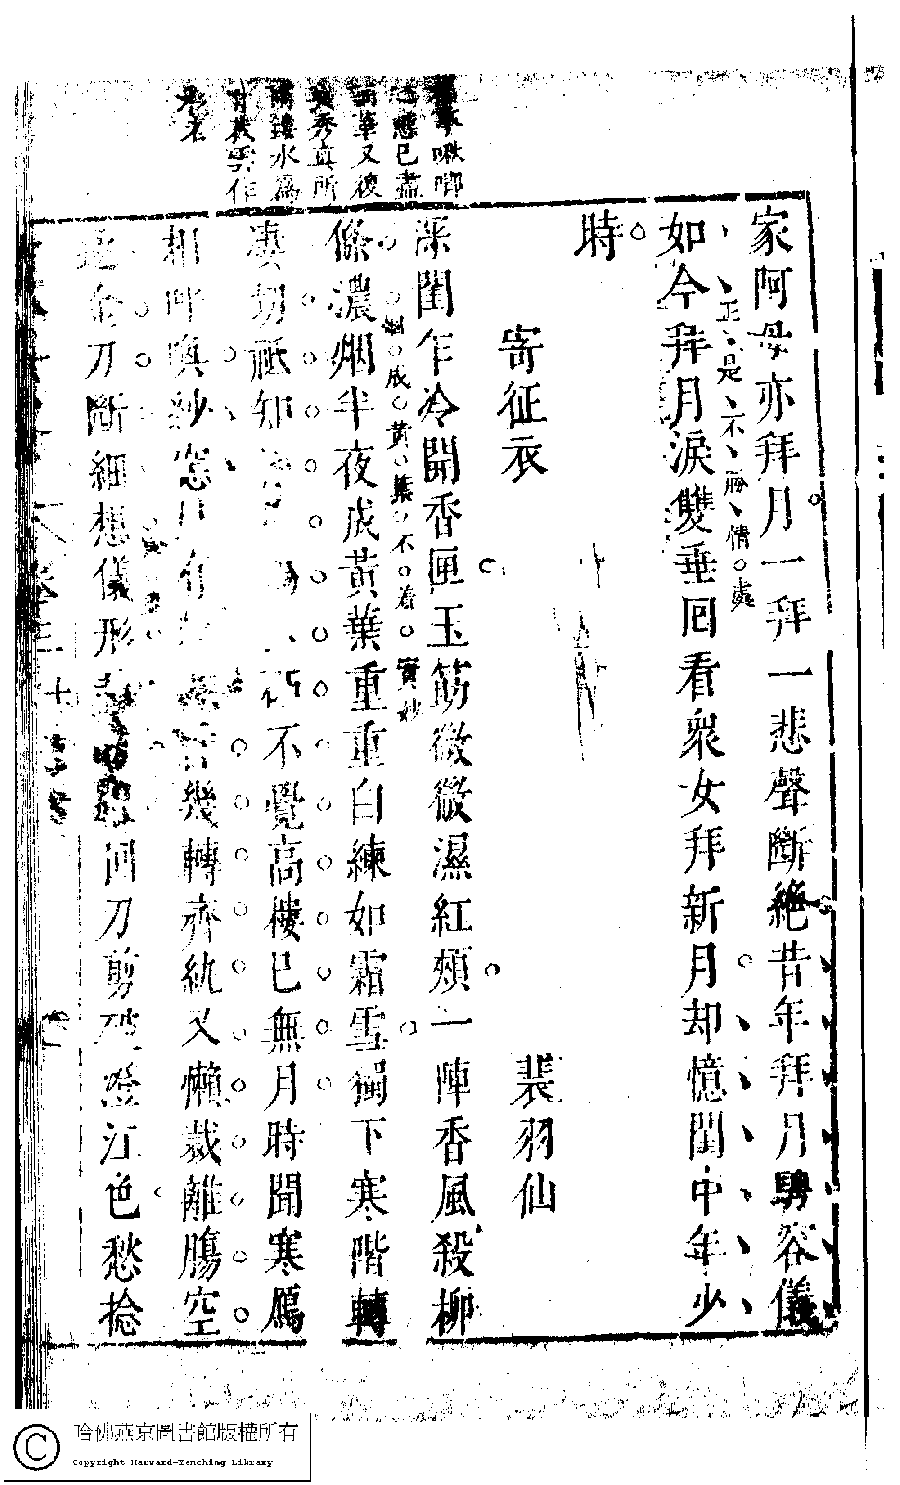 家阿母亦拜月一拜一悲聲斷絕昔年拜月騁容儀
如今拜月淚雙垂回看衆女拜新月却憶閨中年少
正是不勝情處
時
寄征衣
裴羽仙
深閨乍冷開香匣玉筯微微濕紅頰一陣香風殺柳
條濃烟半夜成黃葉重重白練如霜雪獨下寒階轉
烟成黃葉不着實妙
凄切祇知不覺高樓已無月時聞寒鴈
相呼喚紗窓幾轉齊紈又懶裁離膓空
金刀斷細想儀形回刀剪破澄江色愁捻
啾唧
態已盡
華又復
秀真所
鏤水爲
雲作
卷三
哈佛燕京圖書館版權所有
Copyright Harvard-Yenching Library